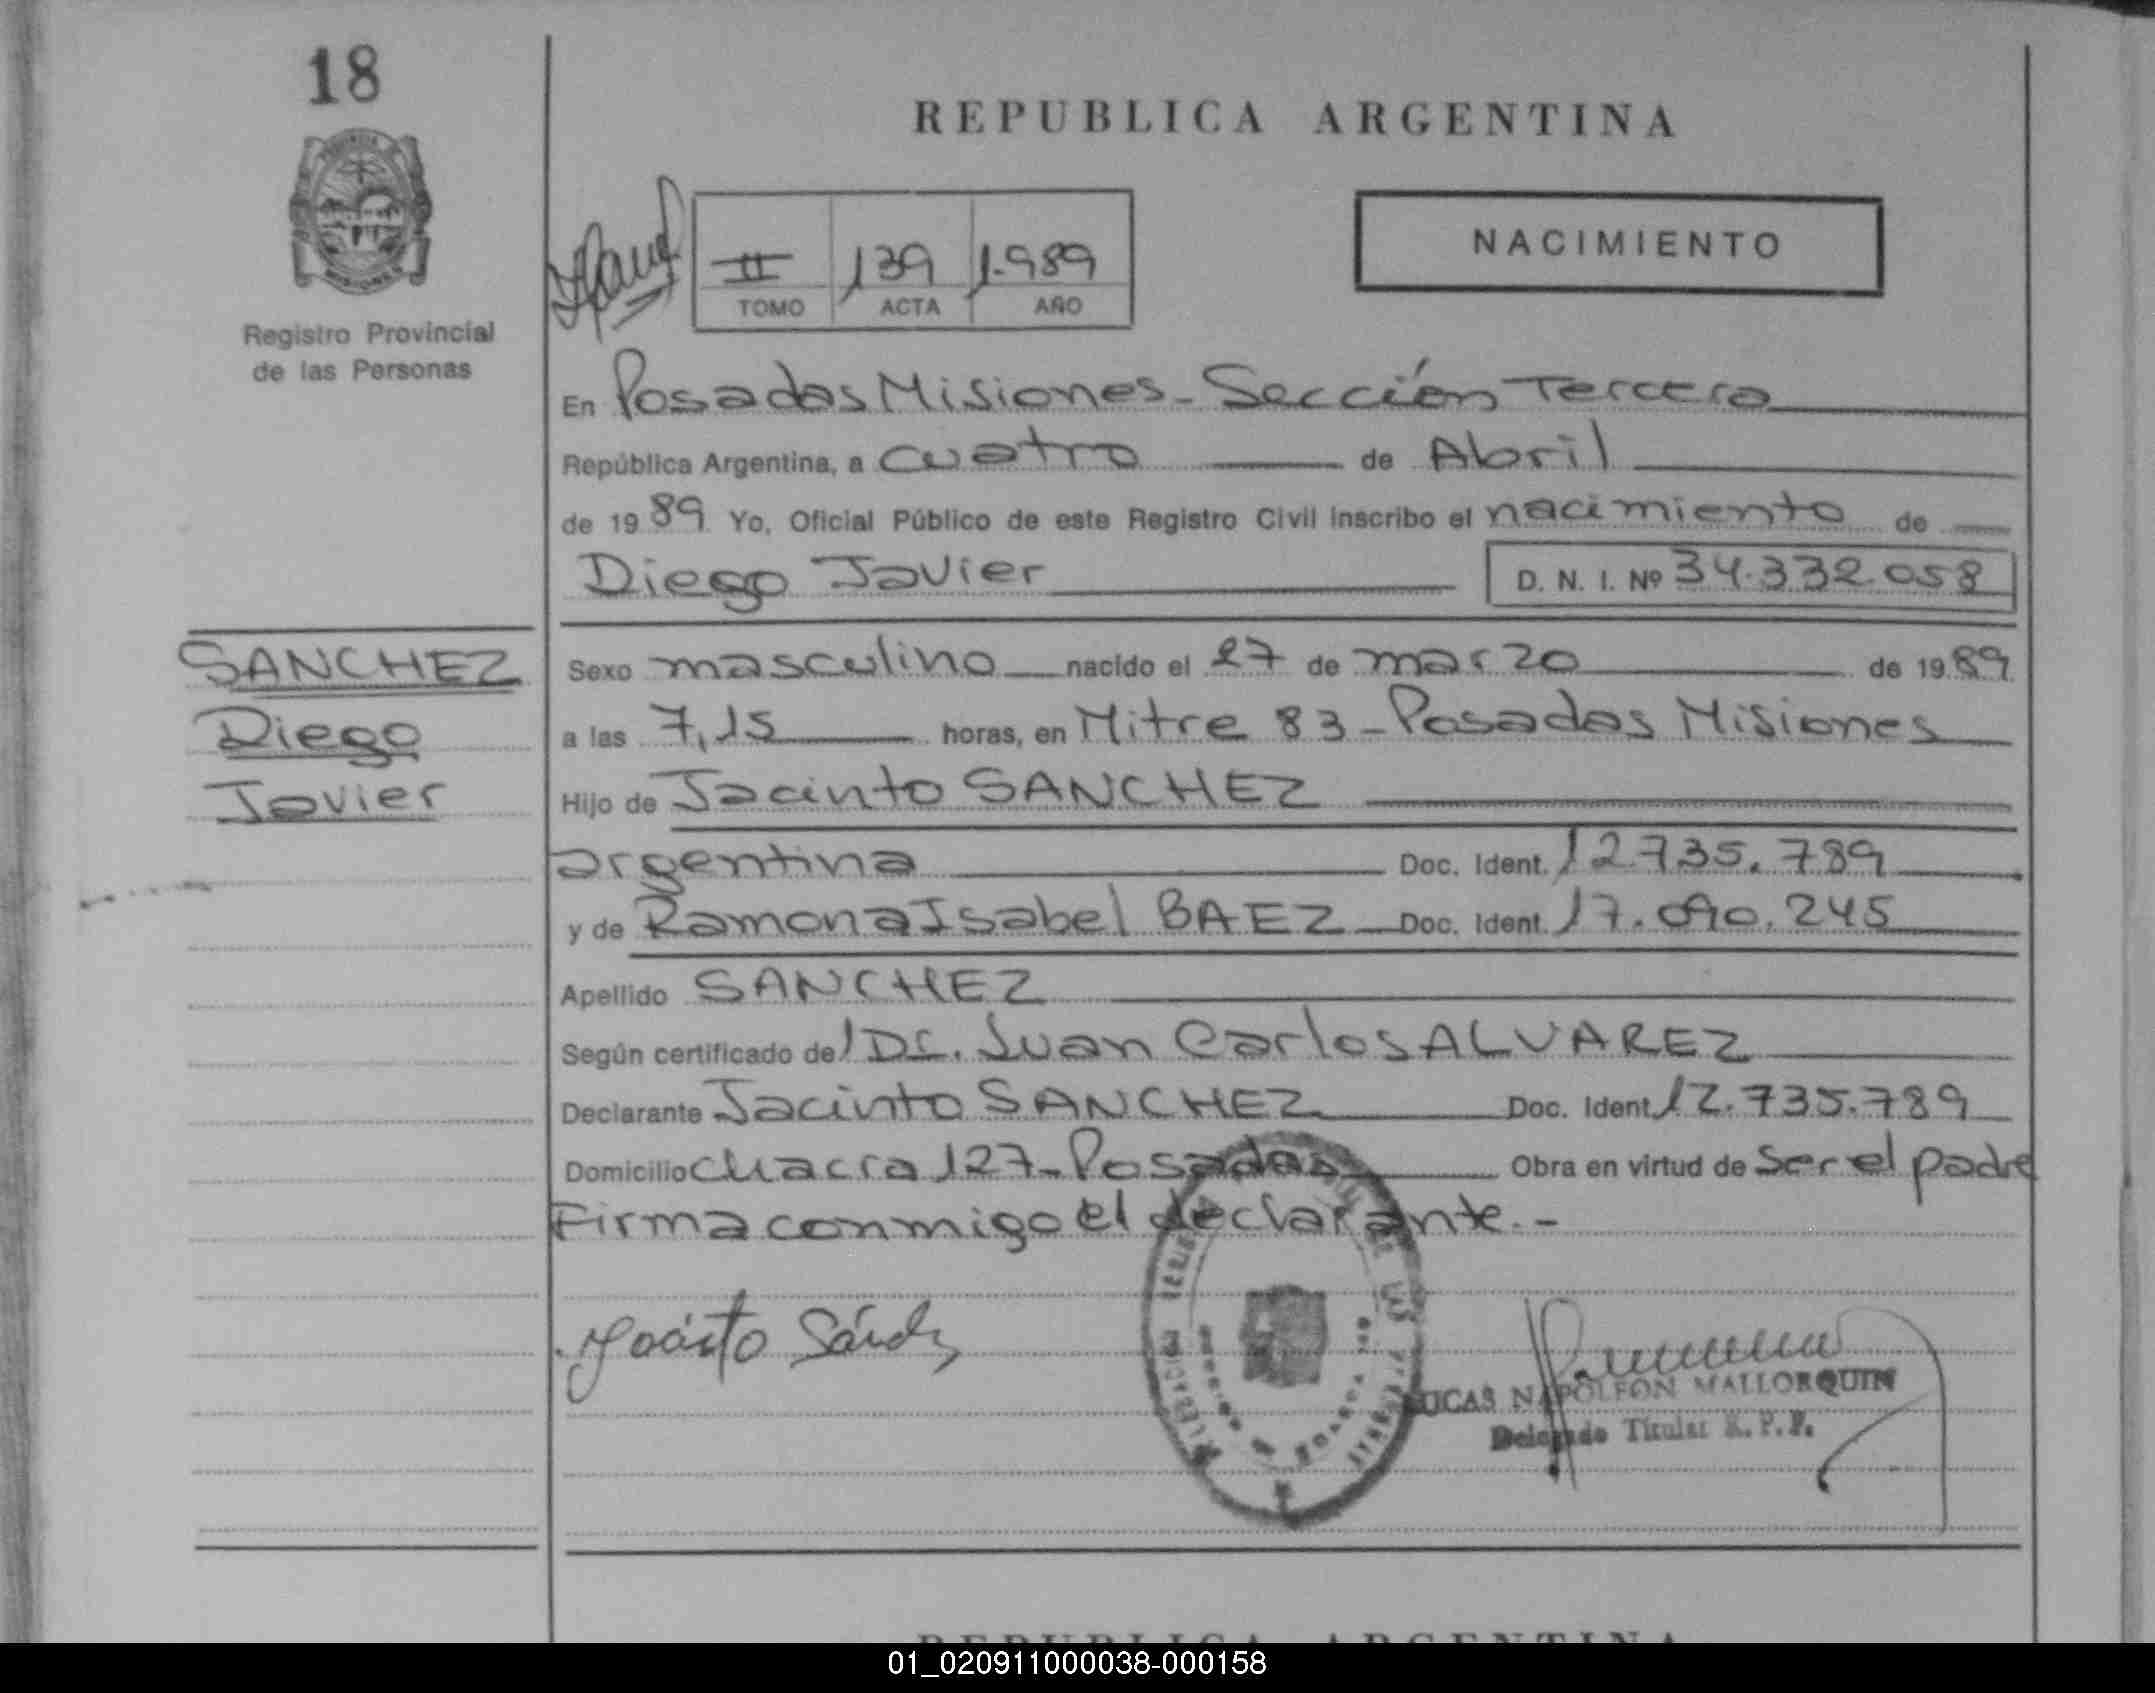 18
REPUBLICA ARGENTINA
II 139 1.989
TOMO ACTA AÑO
NACIMIENTO
Registro Provincial
de las Personas
En Posadas Misiones - Sección Tercera
República Argentina, a cuatro de Abril
de 19 89. Yo, Oficial Público de este Registro Civil inscribo el nacimiento de
Diego Javier D. N. I. Nº 34.332.058
SANCHEZ
Diego
Javier
Sexo masculino nacido el 27 de marzo de 19 89
a las 7,15 horas, en Mitre 83 - Posadas Misiones
Hijo de Jacinto SANCHEZ
argentina Doc. Ident. 12735.789
y de Ramona Isabel BAEZ Doc. Ident. 17.090.245
Apellido SANCHEZ
Según certificado del Dr. Juan Carlos ALVAREZ
Declarante Jacinto SANCHEZ Doc. Ident. 12.735.789
Domicilio Chacra 127 - Posadas Obra en virtud de Ser el padre
Firma conmigo el declarante. -
Jacinto Sánchez
LUCAS NAPOLEON MALLORQUIN
Delegado Titular R. P. P.
REPUBLICA ARGENTINA
01_020911000038-000158